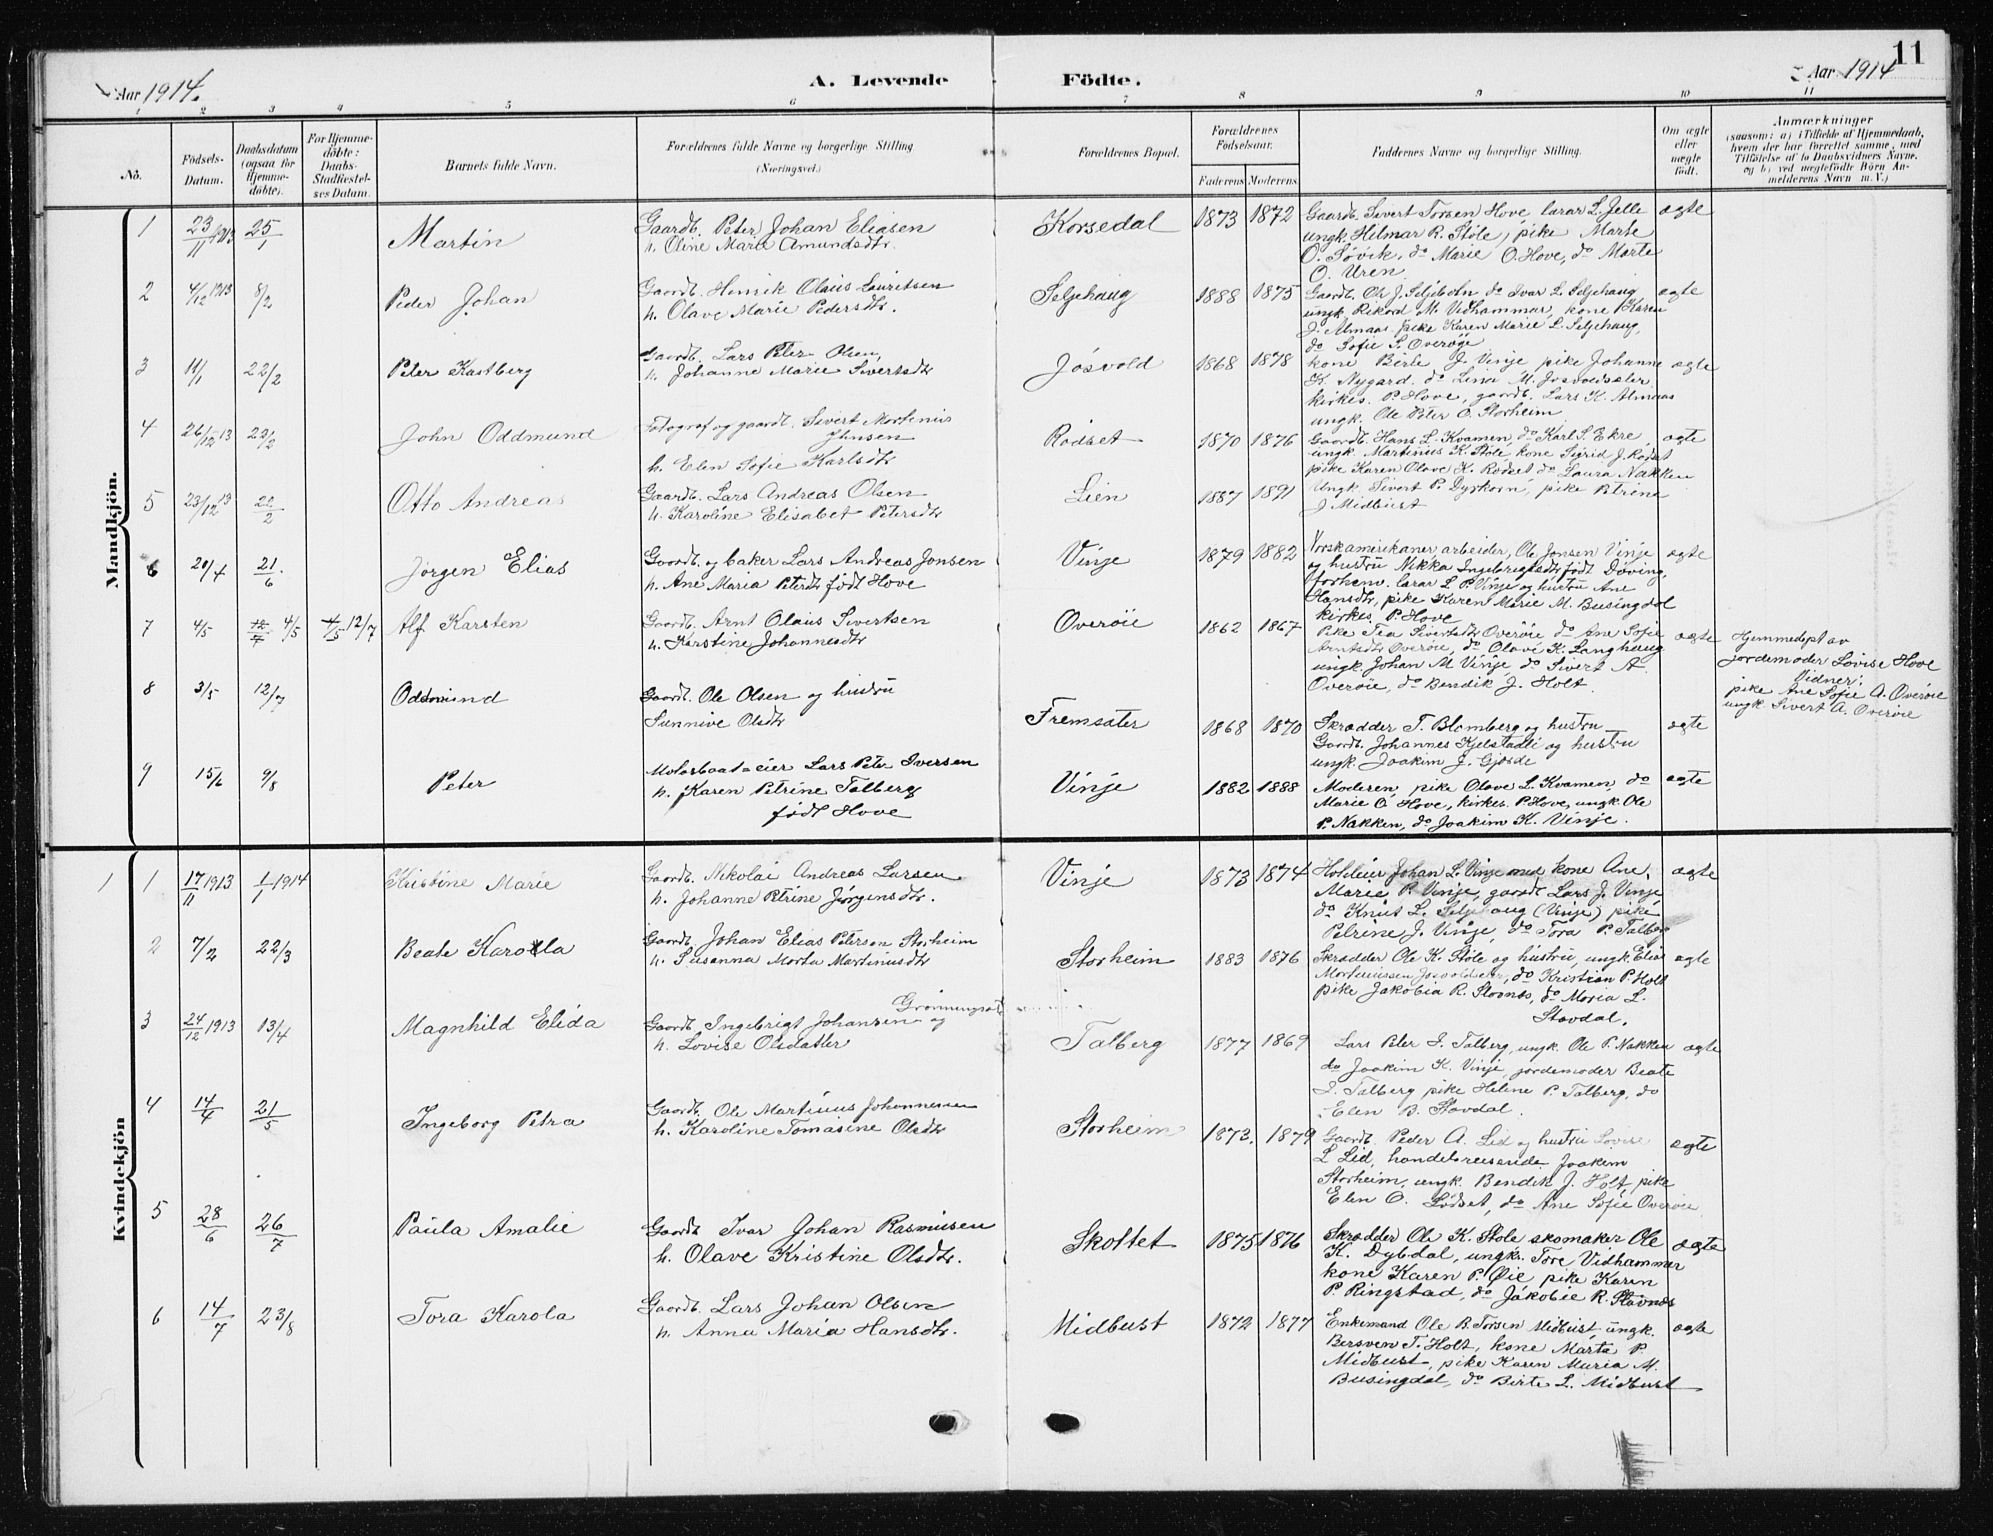 Aar 1914.
A. Levende Födte.
Aar 1914
11
1 2 3 4 5 6 7 8 9 10 11
No.
Födsels-Datum.
Daabsdatum (ogsaa for Hjemmedöbte).
For Hjemmedöbte: Daabs-Stadfæstelses Datum.
Barnets fulde Navn.
Forældrenes fulde Navne og borgerlige Stilling (Næringsvei.)
Forældrenes Bopæl.
Forældrenes Födselsaar.
Faderens Moderens
Faddernes Navne og borgerlige Stilling.
Om ægte eller uægte födt.
Anmærkninger
(saasom: a) i Tilfælde af Hjemmedaab,
hvem der har forrettet samme, med
Tilföielse af to Daabsvidners Navne,
og b) ved uægtefödte Börn Anmelderens Navn m. V.)
Mandkjön.
1 23/11 1913 25/1 Martin
Gaardb. Peter Johan Eliasen
h. Oline Marie Amundsdtr.
Korsedal 1873 1872
Gaardb. Sivert Torsen Hove, lærar L. Jelle
ungk. Hilmar R. Støle, pike Marte
O. Søvik, do Marie O. Hove, do Marte
O. Uren
ægte
2 4/12 1913 8/2 Peder Johan
Gaardb. Henrik Olaus Lauritsen
h. Olave Marie Pedersdtr.
Seljehaug 1888 1875
Gaardb. Ole J. Seljebotn do Ivar L. Seljehaug
ungk. Rikard M. Vidhammar, kone Karen
J. Almaas pike Karen Marie L. Seljehaug,
do Sofie S. Overøie
ægte
3 11/1 22/2 Peter Kastberg
Gaardb. Lars Peter Olsen,
h. Johanne Marie Sivertsdtr
Jøsvold 1868 1878
kone Birte J. Vinje pike Johanne
K. Nygard do Lina M. Jøsvoldsæter
kirkes. P. Hove, gaardb. Lars K. Almaas
ungk. Ole Peter O. Storheim
ægte
4 26/12 13 22/2 John Oddmund
Fotograf og gaardb. Sivert Mortinus
Johnsen
h. Elen Sofie Karlsdtr
Rødset 1870 1876
Gaardb. Hans L. Kvamen, do Karl S. Ekre
ungk. Martinus K. Støle kone Sigrid J. Rødset
pike Karen Olave K. Rødset do Laura Nakken
ægte
5 23/12 13 22/2 Otto Andreas
Gaardb. Lars Andreas Olsen
h. Karoline Elisabet Petersdtr
Lien 1887 1891
Ungk. Sivert P. Dyrkorn, pike Petrina
J. Midbust
6 20/4 21/6. Jørgen Elias
Gaardb. og baker Lars Andreas Jonsen
h. Ane Maria Petersdtr født Hove
Vinje 1879 1882
Norskamerikaner, arbeider, Ole Jonsen Vinje
og hustru Nikka Ingebrigtsdtr født Døving,
forhenv. lærar L. P. Vinje og hustru Ane
Hansdtr, pike Karen Marie M. Busingdal
kirkes. P. Hove
ægte
7 4/5 12/7 4/5 4/5 12/7 Alf Karsten
Gaardb. Arnt Olaus Sivertsen
h. Karstine Johannesdtr
Overøie 1862 1867
Pike Tea Sivertsdtr Overøie do Ane Sofie
Arntsdtr Overøie, do Olave K. Langhaug
ungk. Johan M. Vinje do Sivert A.
Overøie, do Bendik J. Holt
ægte
Hjemmedøpt av
jordemoder Lovise Hove
Vidner:
pike Ane Sofie A. Overøie
ungk. Sivert A. Overøie
8 3/5 12/7 Oddmund
Gaardb. Ole Olsen og hustru
Sunnive Olsdtr
Fremsæter 1868 1870
Skrædder T. Blomberg og hustru
Gaardb. Johannes Kjelstadli og hustru
ungk. Joakim J. Gjøsde
ægte
9 15/6 9/8 Peter
Motorbaat-eier Lars Peter Iversen
h. Karen Petrine Talberg
født Hove
Vinje 1882 1888
Moderen, pike Olave L. Kvamen, do
Marie O. Hove, kirkes. P. Hove, ungk. Ole
P. Nakken, do Joakim K. Vinje.
ægte
Kvindekjön
1 1 17/11 1913 1/1 1914 Kristine Marie
Gaardb. Nikolai Andreas Larsen
h. Johanne Petrine Jørgensdtr.
Vinje 1873 1874
Hoteleier Johan L. Vinje med kone Ane
Marie P. Vinje, gaardb. Lars J. Vinje,
do Knut L. Seljehaug (Vinje) pike
Petrine J. Vinje, do Tora P. Talberg
ægte
2 7/2 22/3 Beate Karola
Gaardb. Johan Elias Petersen Storheim
h. Susanna Marta Martinusdtr
Storheim 1883 1876
Skrædder Ole K. Støle og hustru, ungk. Elias
Mortinussen Jøsvoldsæter, do Kristian P. Holt
pike Jakobia R. Stavnes, do Maria L.
Stavdal.
ægte
3 24/12 1913 13/4 Magnhild Elida
Grønningsæt
Gaardb. Ingebrigt Johansen og
h. Lovise Olsdatter
Talberg 1877 1869
Lars Peter I. Talberg, ungk. Ole P. Nakken
do Joakim K. Vinje, jordemoder Beate
I. Talberg pike Heline P. Talberg, do
Elen B. Stavdal.
ægte
4 14/4 21/5 Ingeborg Petra
Gaardb. Ole Martinus Johannessen
h. Karoline Tomasine Olsdtr
Storheim 1873. 1879
Gaardb. Peder A. Lid og hustru Lovise
L. Lid, handelsreisende Joakim
Storheim, ungk. Bendik J. Holt pike
Elen O. Lødset, do Ane Sofie Overøie
ægte
5 28/6 26/7 Paula Amalie
Gaardb. Ivar Johan Rasmusen
h. Olave Kristine Olsdtr.
Skottet 1875 1876
Skrædder Ole K. Støle skomaker Ole
K. Dybdal, ungk. Tore Vidhammer
kone Karen P. Øie pike Karen
P. Ringstad, do Jakobie R. Stavnes
ægte
6 14/7 23/8 Tora Karola
Gaardb. Lars Johan Olsen
h. Anna Maria Hansdtr.
Midbust 1872 1877
Enkemand Ole B. Torsen Midbust, ungk.
Bersven T. Holt, kone Marta P.
Midbust, pike Karen Maria M.
Busingdal, do Birte L. Midbust
ægte